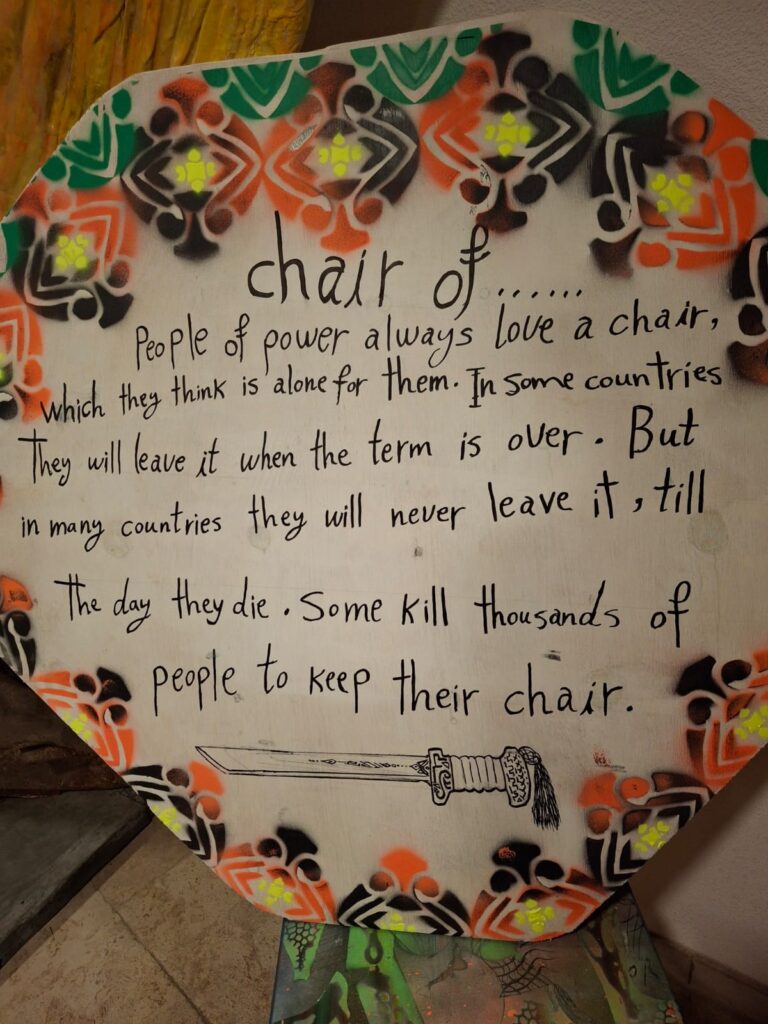 chair of......
People of power always love a chair,
which they think is alone for them. In some countries
They will leave it when the term is over. But
in many countries they will never leave it, till
The day they die. Some kill thousands of
people to keep their chair.